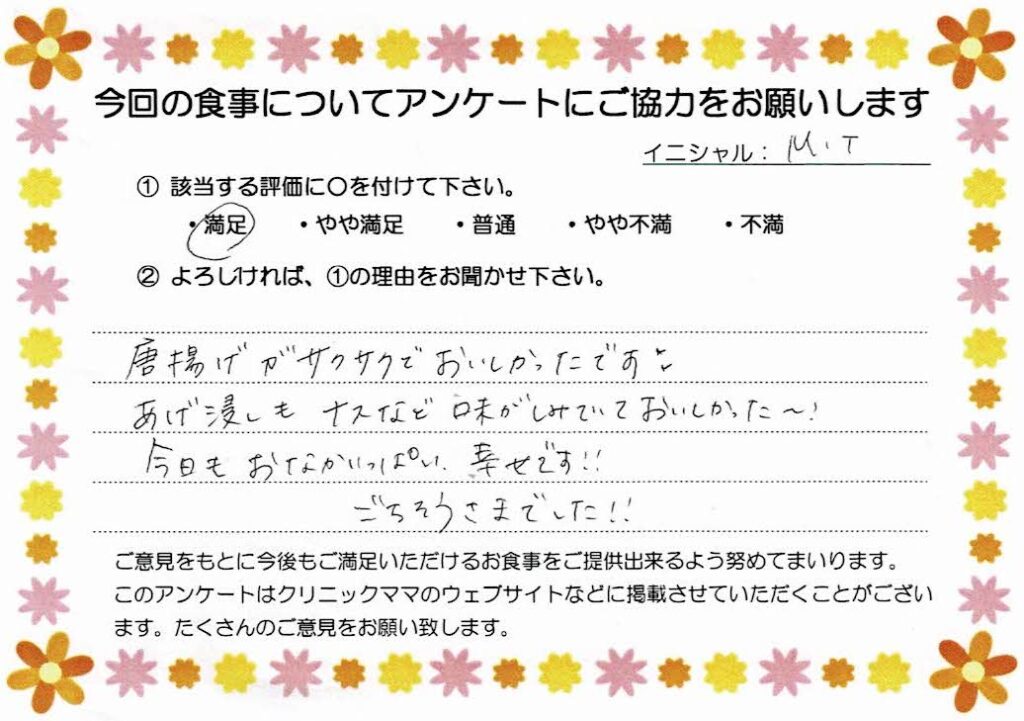 今回の食事についてアンケートにご協力をお願いします
イニシャル：M.T
① 該当する評価に〇を付けて下さい。
・満足 ・やや満足 ・普通 ・やや不満 ・不満
② よろしければ、①の理由をお聞かせ下さい。
唐揚げがサクサクでおいしかったです♪
あげ浸しも ナスなど味がしみていておいしかった〜!
今日もおなかいっぱい、幸せです!!
ごちそうさまでした!!
ご意見をもとに今後もご満足いただけるお食事をご提供出来るよう努めてまいります。
このアンケートはクリニックママのウェブサイトなどに掲載させていただくことがござい
ます。たくさんのご意見をお願い致します。